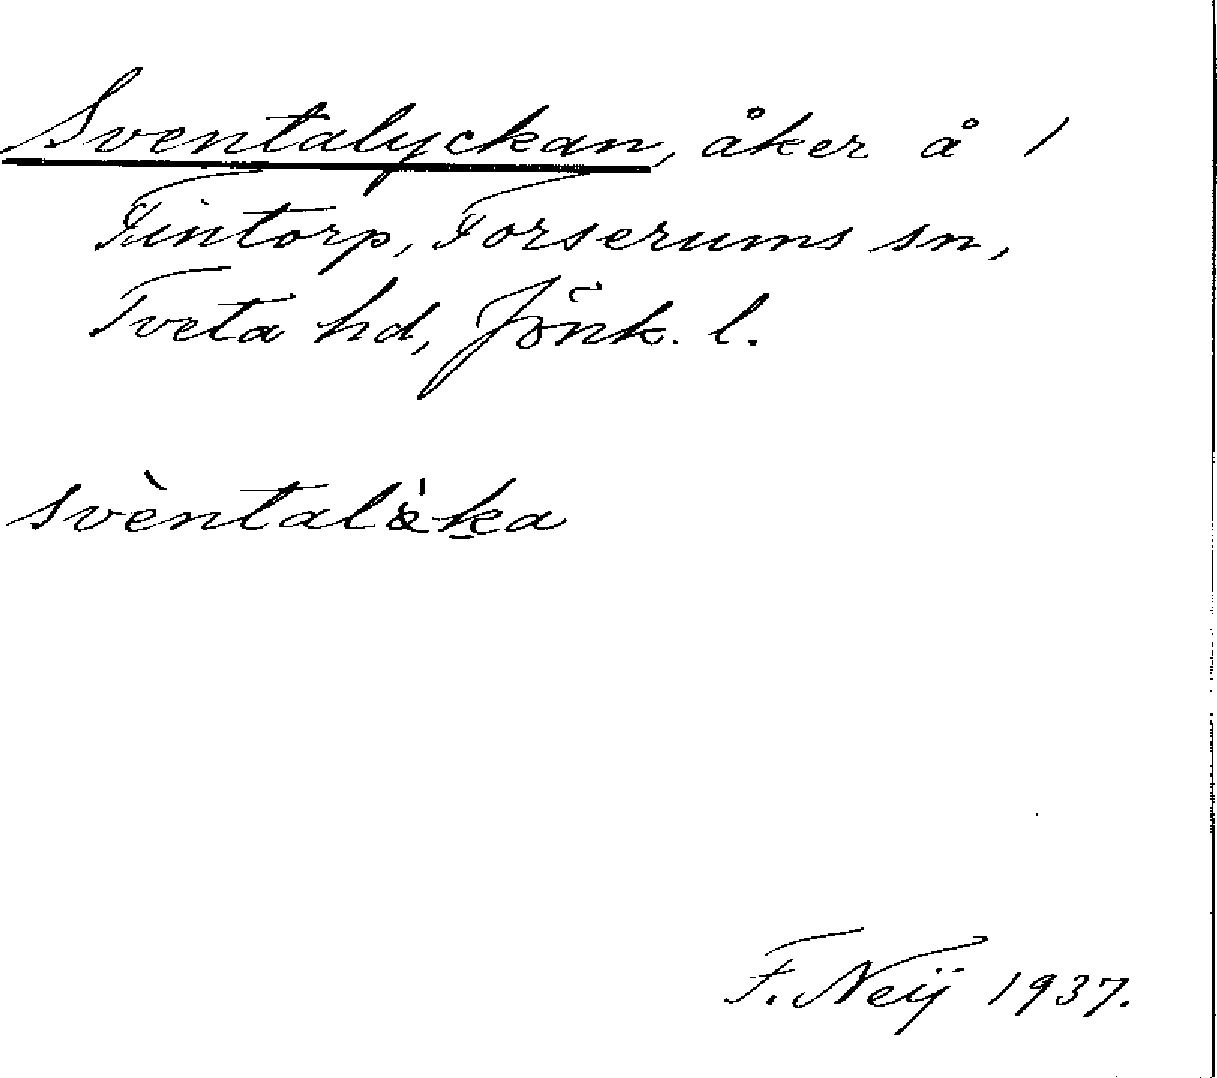 Sventalyckan, åker å 1
Fintorp, Forserums sn,
Tveta hd, Jönk. l.
F. Neij 1937.